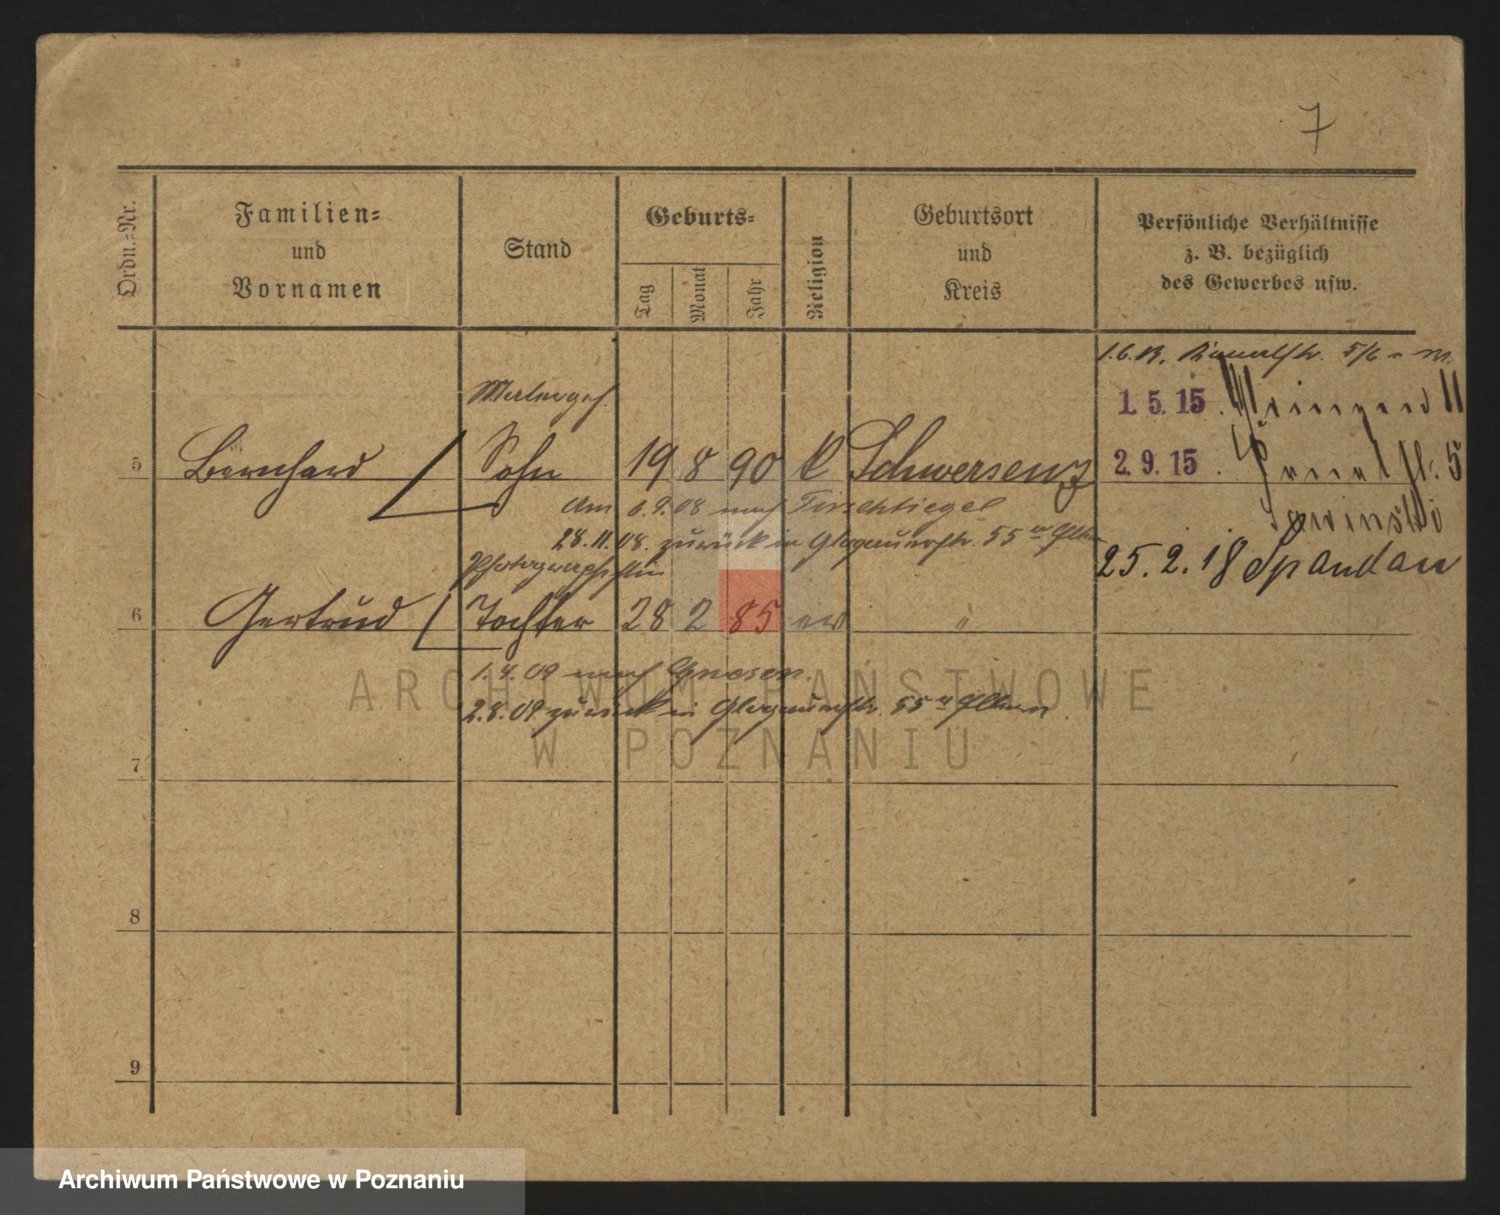 7
Ordn.-Nr.
Familien-
und
Vornamen
Stand
Geburts-
Tag
Monat
Jahr
Religion
Geburtsort
und
Kreis
Persönliche Verhältnisse
z. B. bezüglich
des Gewerbes usw.
5/6
Malergeh.
1.5.15
5 Bernhard Sohn 19 8 90 k Schwersenz
2.9.15 5
Am 6.9.08 nach Tirschtiegel
28.11.08. zurück in Glogauerstr. 55
25.2.18 Spandau
Photographistin
6 Gertrud Tochter 28 2 85 ev "
1.4.09 nach Gnesen.
2.8.09 zurück in Glogauerstr. 55 Eltern
ARCHIWUM PAŃSTWOWE
W POZNANIU
7
8
9
Archiwum Państwowe w Poznaniu